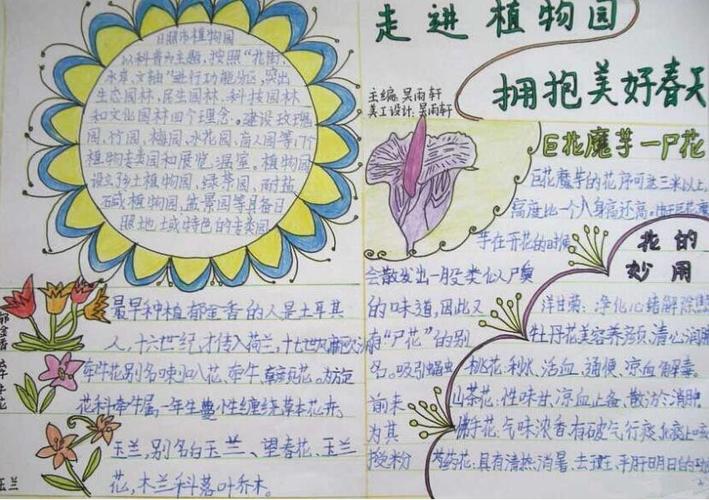 日照市植物园
以科普为主题,按照“花街、
水岸、文轴”进行功能分区,突出
生态园林、民生园林、科技园林
和文化园林四个理念。建设玫瑰
园、竹园、梅园、水花园、盲人园等17个
植物专类园和展览温室。植物园
设立乡土植物园、绿茶园、耐盐
碱植物园、盆景园等具备日
照地域特色的专类园
最早种植郁金香的人是土耳其
人,十六世纪,才传入荷兰,十七世纪
牵牛花别名喇叭花、牵牛、
花科牵牛属一年生蔓性缠绕草本花卉。
玉兰,别名白玉兰、望春花、玉兰
花,木兰科落叶乔木。
郁金香
牵牛花
玉兰
走进植物园
拥抱美好春天
主编:吴雨轩
美工设计:吴雨轩
巨花魔芋—尸花
巨花魔芋的花序可达三米以上,
高度比一个人身高还高。由于巨花魔
芋在开花的时候
会散发出一股类似尸臭
的味道,因此又
有“尸花”的别
名。吸引蝇虫
前来
为其
授粉
花的
妙用
洋甘菊:净化心绪解除
牡丹花美容养颜,清心润肺
桃花:利水、活血、通便、凉血解毒。
山茶花:性味甘、凉血止备、散淤消肿
佛手花:气味浓香.有破气行
芍药花:具有清热消暑、去斑、平肝明目的功